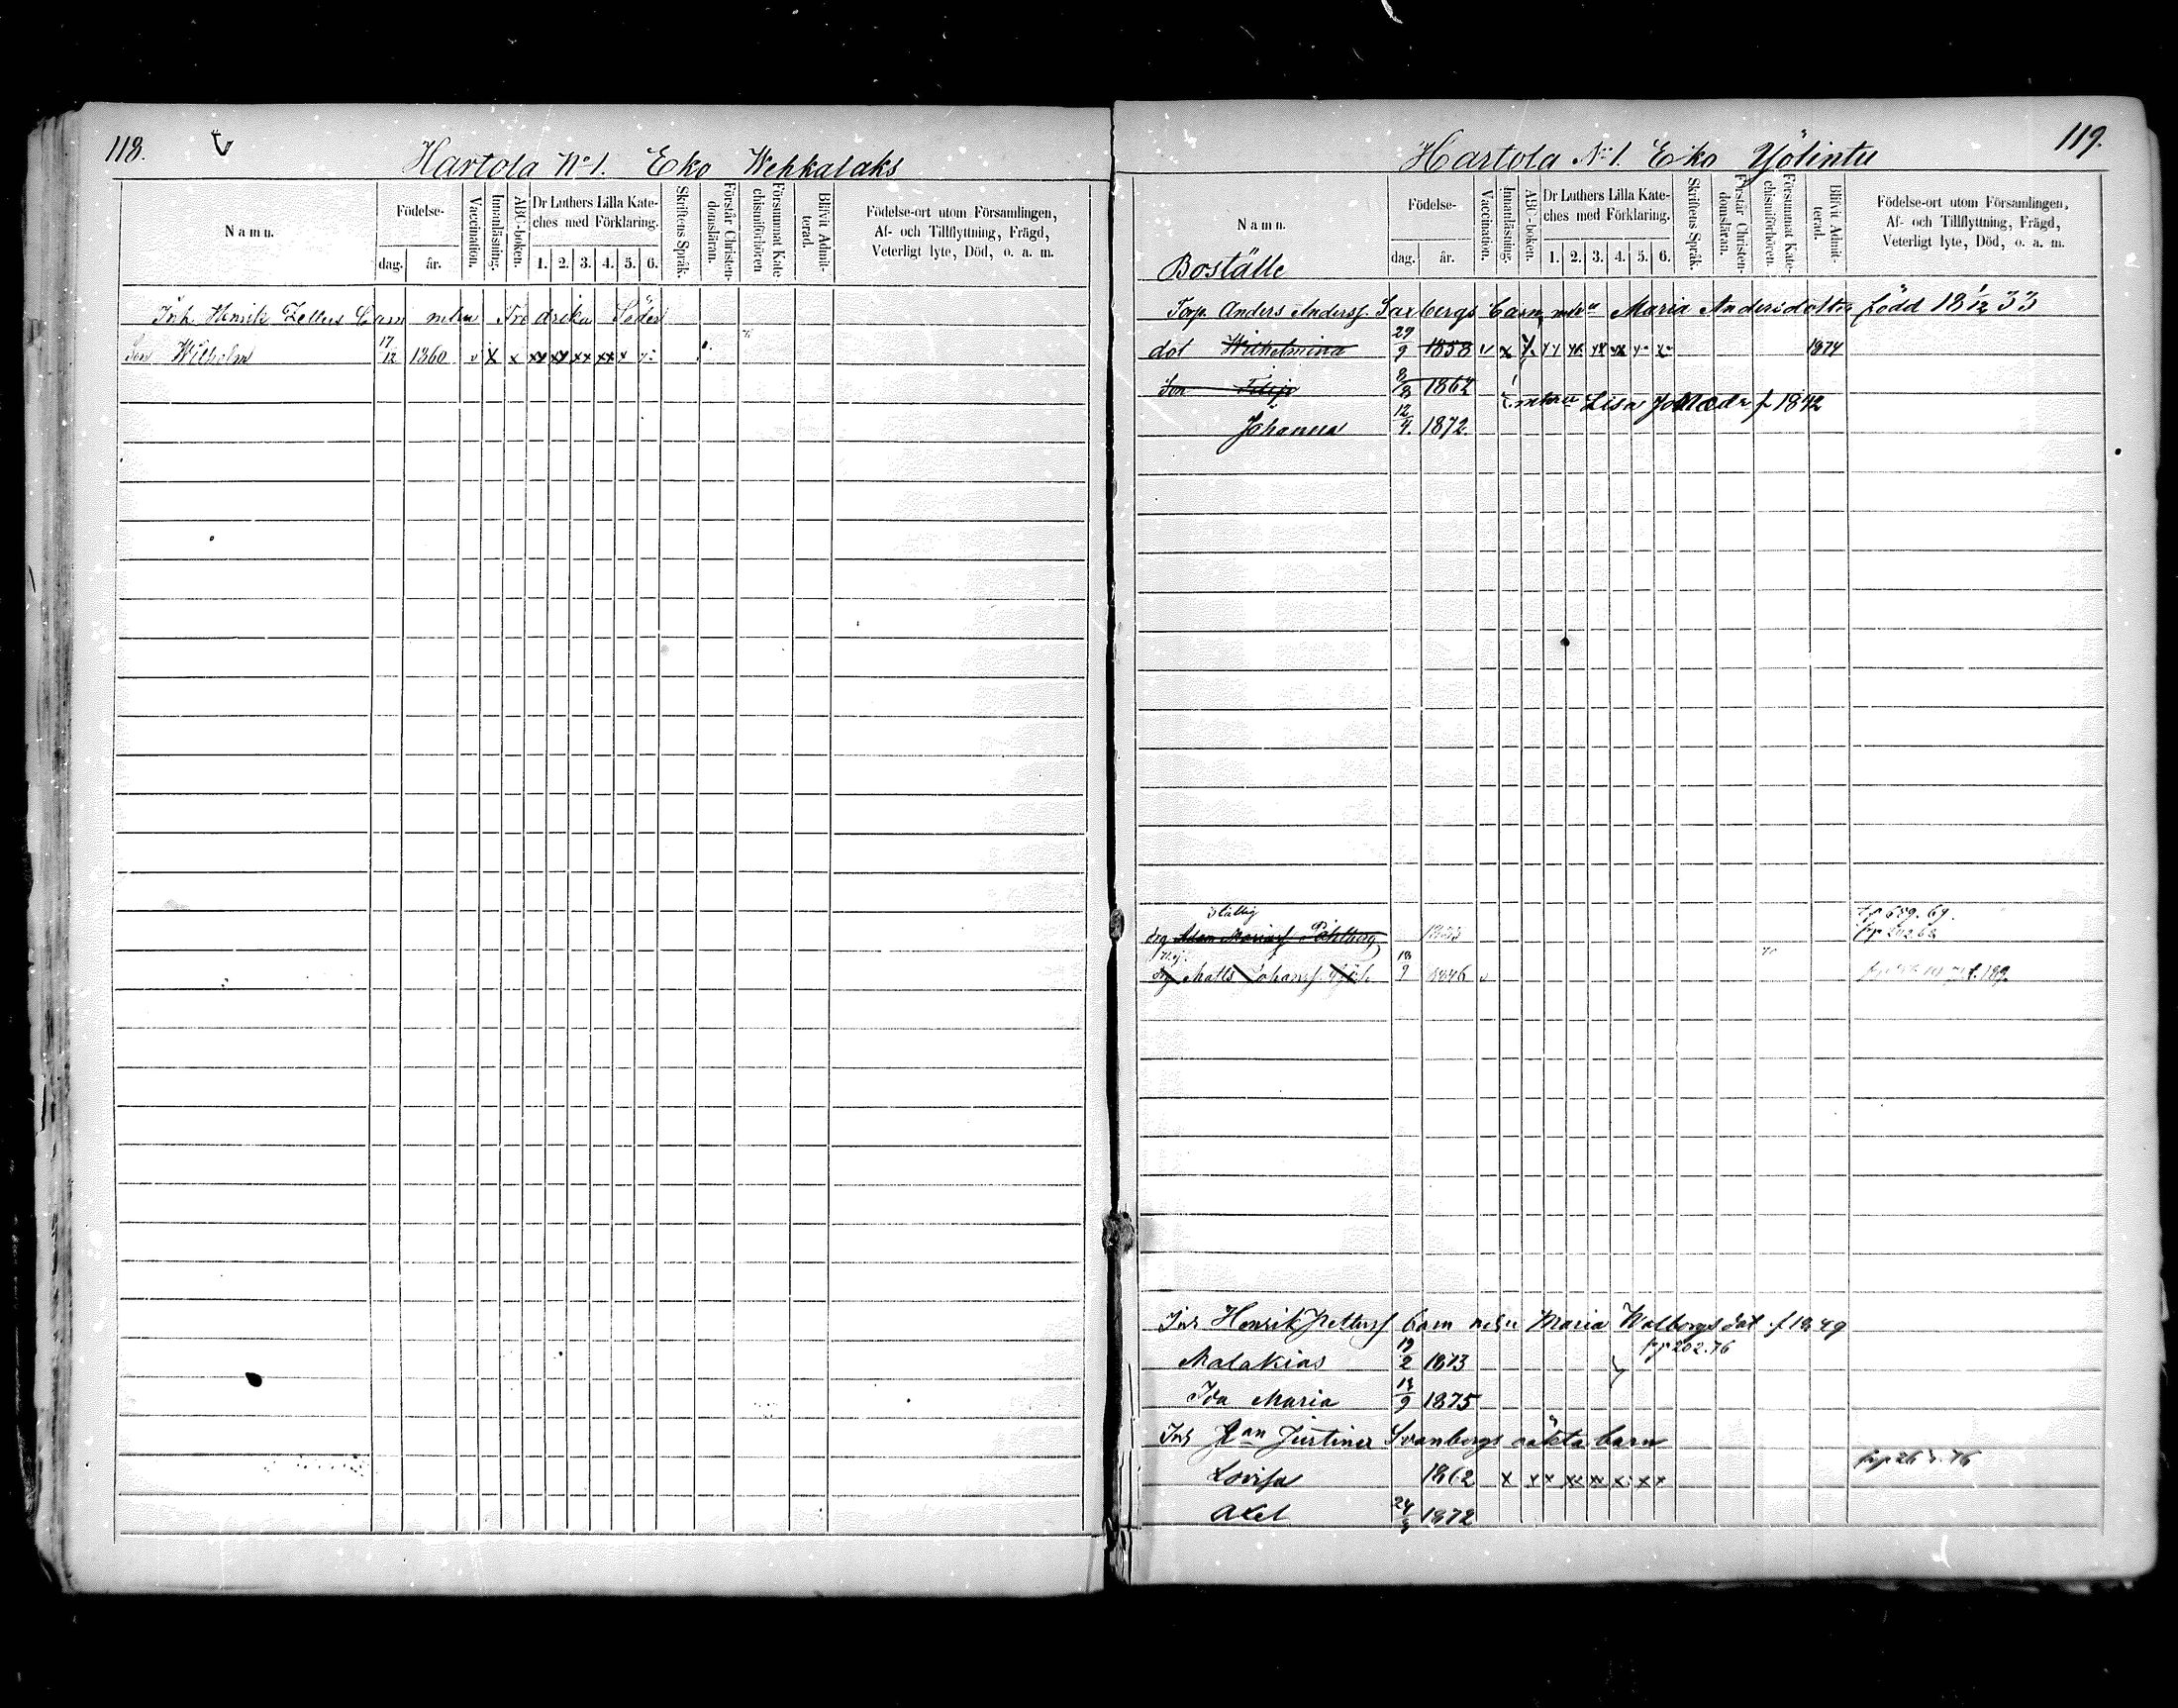 118.
Hartola No 1. Eko Wehkalaks
Namn.
Födelse-
dag.
år.
Vaccination.
Innanläsning.
ABC-boken.
Dr Luthers Lilla Kate-
ches med Förklaring.
1. 2. 3. 4. 5. 6.
Skriftens Språk.
Förstår Christen-
domsläran.
Försummat Kate-
chismiförhören
Blifvit Admit-
terad.
Födelse-ort utom Församlingen,
Af- och Tillflyttning, Frägd,
Veterligt lyte, Död, o. a. m.
Inh. Henrik Zellers Barn
Son Wilhelm 17/12 1860 v x x xx xx xx xx x
119.
Hartola No 1. Eko Yölintu
Namn.
Födelse-
dag.
år.
Vaccination.
Innanläsning.
ABC-boken.
Dr Luthers Lilla Kate-
ches med Förklaring.
1. 2. 3. 4. 5. 6.
Skriftens Språk.
Förstår Christen-
domsläran.
Försummat Kate-
chismiförhören.
Blifvit Admit-
terad.
Födelse-ort utom Församlingen,
Af- och Tillflyttning, Frägd,
Veterligt lyte, Död, o. a. m.
Boställe
Torp. Anders Andersf. Saxbergs barn, Maria Andersdotter född 18 1/12 33
dot Wilhelmina 29/9 1858 1874
Son Filip 8/8 1862
Lisa f 1842
Johanna 12/4. 1872.
drg Adam Pahlberg
drg Matts Johansf. 18/9 1846
Henrik Pettersf barn Maria Walborgs dot f 1849
Malakias 19/2 1873
Ida Maria 13/9 1875
Justina Svanbergs oäkta barn
Lovisa 1862 x x x x x x x x
Axel 1872